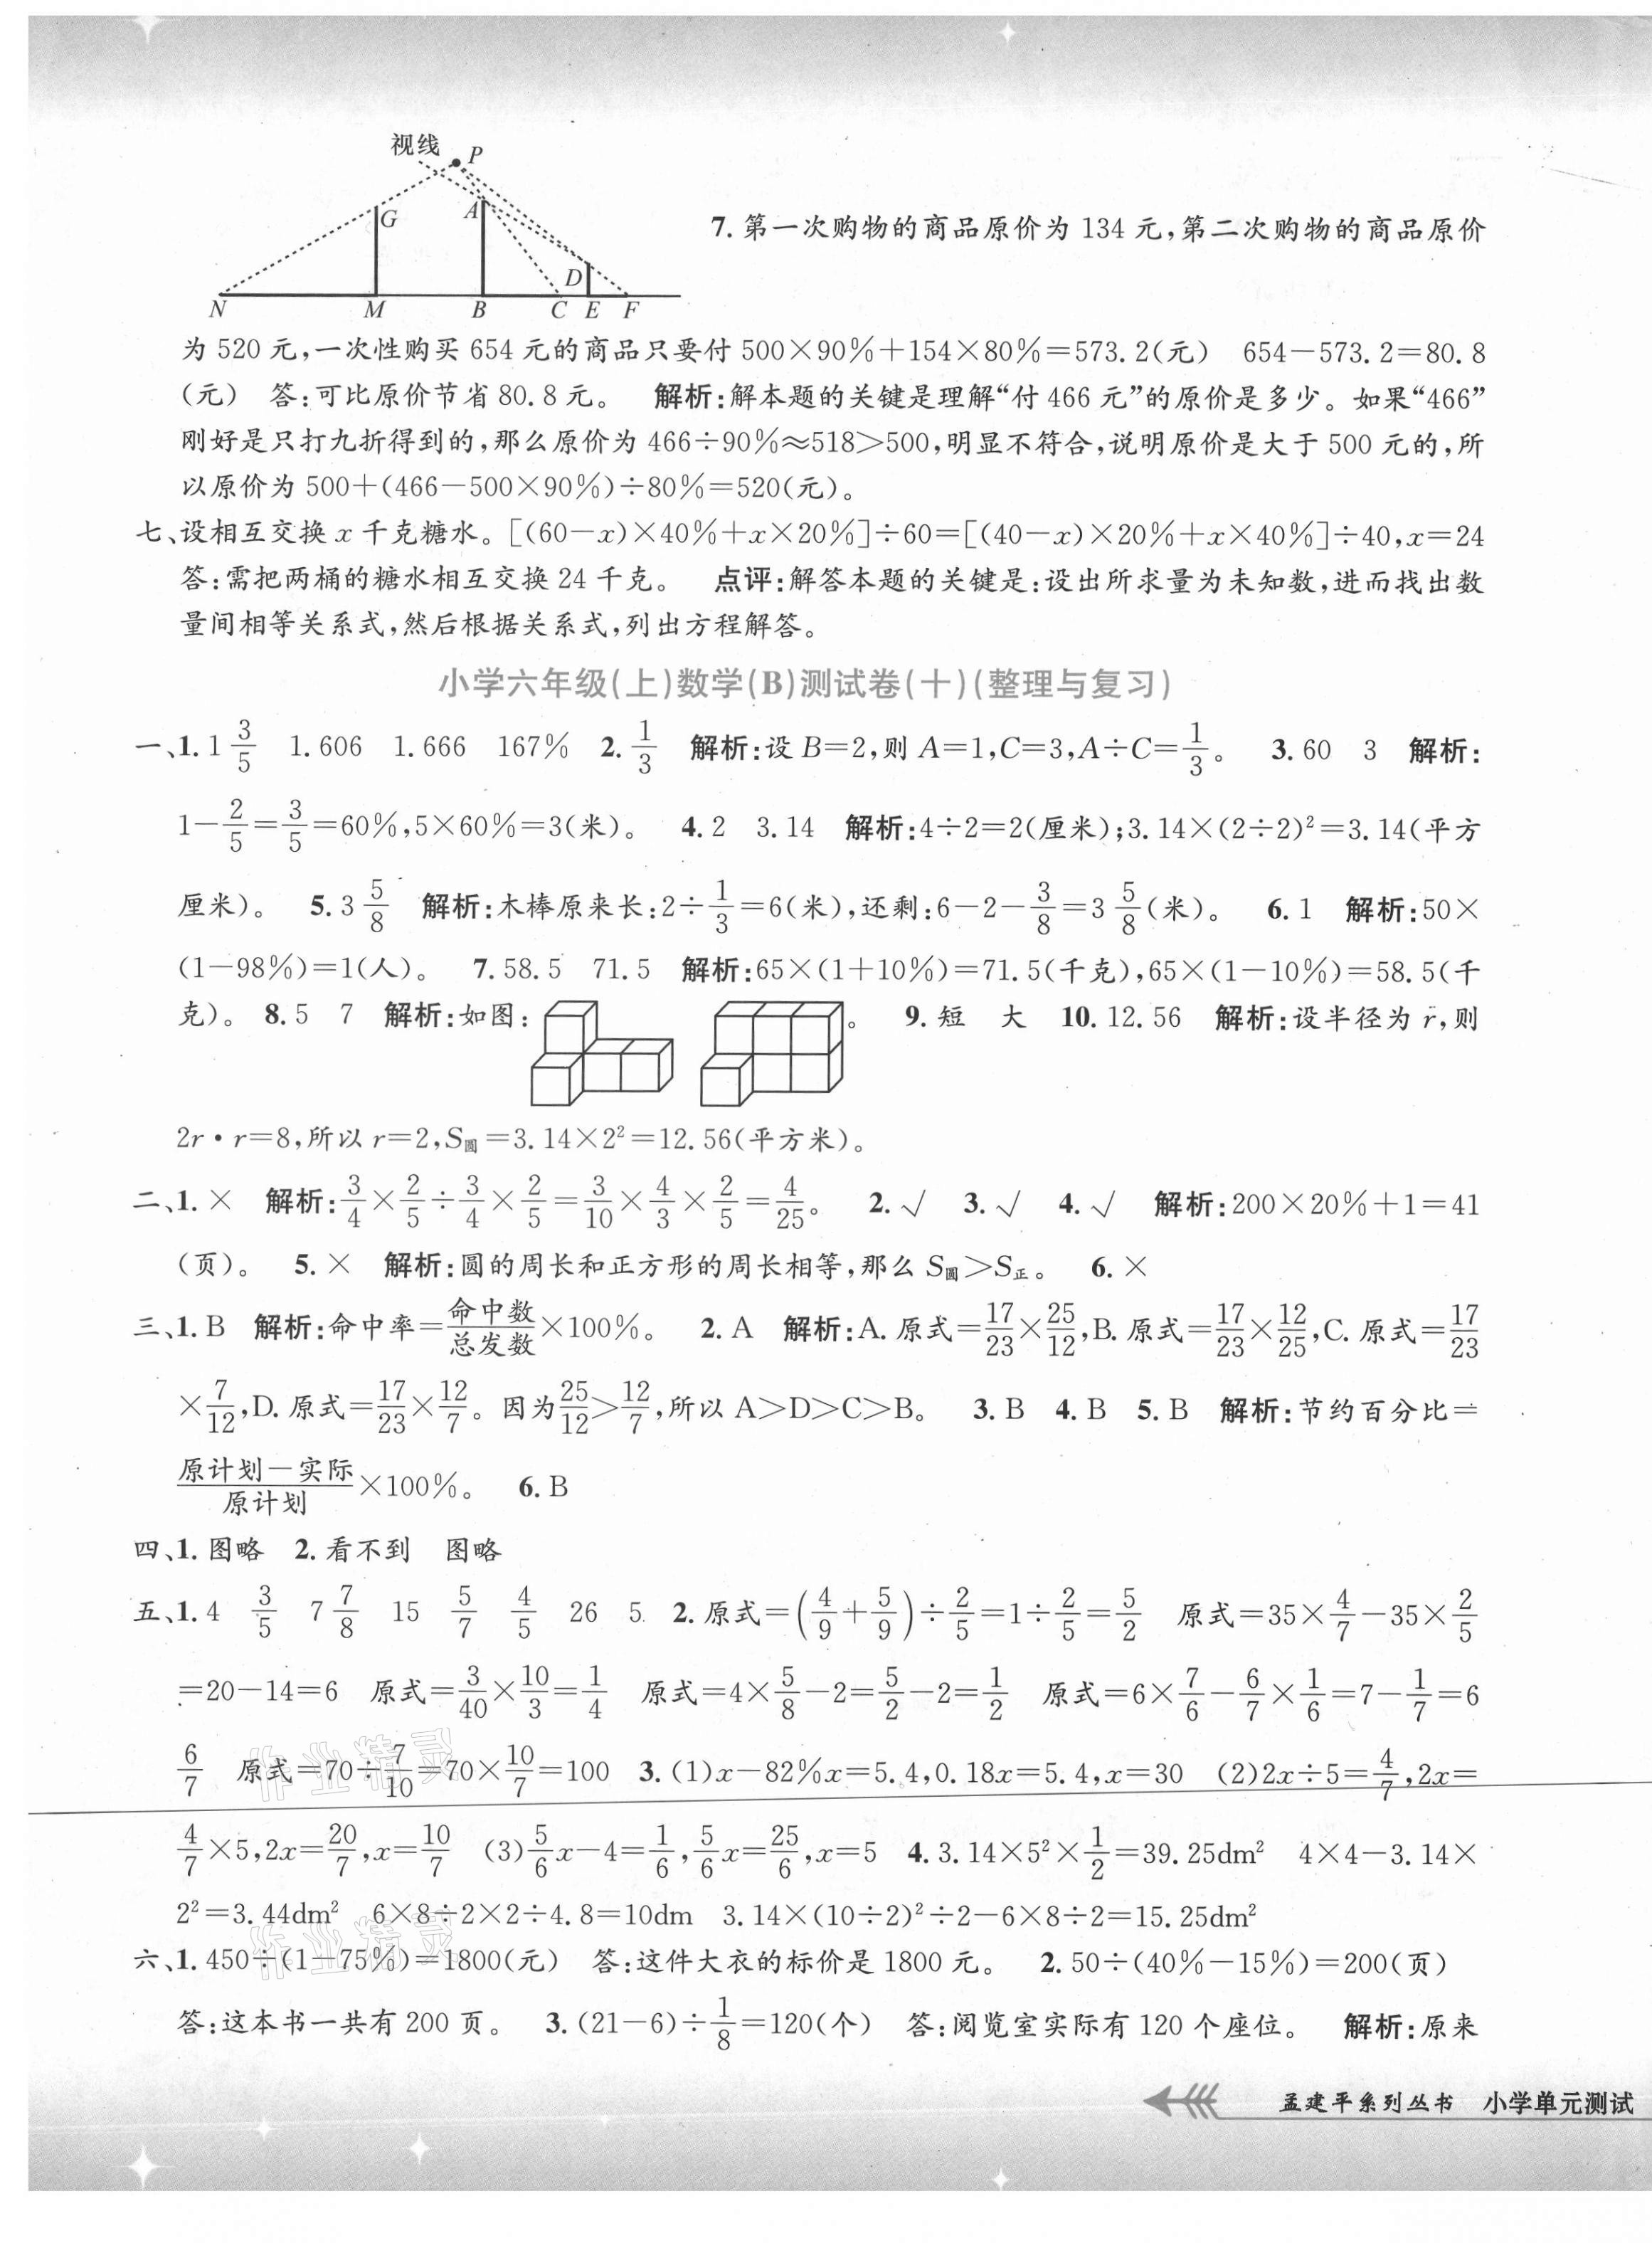 视线 P
G A
D
N M B C E F
7. 第一次购物的商品原价为 134 元,第二次购物的商品原价
为 520 元,一次性购买 654 元的商品只要付 500×90%+154×80%=573.2(元) 654-573.2=80.8
(元) 答:可比原价节省 80.8 元。 解析:解本题的关键是理解“付 466 元”的原价是多少。如果“466”
刚好是只打九折得到的,那么原价为 466÷90%≈518>500,明显不符合,说明原价是大于 500 元的,所
以原价为 500+(466-500×90%)÷80%=520(元)。
七、设相互交换 x 千克糖水。[(60-x)×40%+x×20%]÷60=[(40-x)×20%+x×40%]÷40,x=24
答:需把两桶的糖水相互交换 24 千克。 点评:解答本题的关键是:设出所求量为未知数,进而找出数
量间相等关系式,然后根据关系式,列出方程解答。
小学六年级(上)数学(B)测试卷(十)(整理与复习)
一、1. 1 3/5 1.606 1.666 167% 2. 1/3 解析:设 B=2,则 A=1,C=3,A÷C=1/3。 3. 60 3 解析:
1-2/5=3/5=60%,5×60%=3(米)。 4. 2 3.14 解析:4÷2=2(厘米);3.14×(2÷2)²=3.14(平方
厘米)。 5. 3 5/8 解析:木棒原来长:2÷1/3=6(米),还剩:6-2-3/8=3 5/8(米)。 6. 1 解析:50×
(1-98%)=1(人)。 7. 58.5 71.5 解析:65×(1+10%)=71.5(千克),65×(1-10%)=58.5(千
克)。 8. 5 7 解析:如图: 。 9. 短 大 10. 12.56 解析:设半径为 r,则
2r·r=8,所以 r=2,S圆=3.14×2²=12.56(平方米)。
二、1. × 解析:3/4×2/5÷3/4×2/5=3/10×4/3×2/5=4/25。 2. √ 3. √ 4. √ 解析:200×20%+1=41
(页)。 5. × 解析:圆的周长和正方形的周长相等,那么 S圆>S正。 6. ×
三、1. B 解析:命中率=命中数/总发数×100%。 2. A 解析:A. 原式=17/23×25/12,B. 原式=17/23×12/25,C. 原式=17/23
×7/12,D. 原式=17/23×12/7。因为25/12>12/7,所以 A>D>C>B。 3. B 4. B 5. B 解析:节约百分比=
原计划-实际/原计划×100%。 6. B
四、1. 图略 2. 看不到 图略
五、1. 4 3/5 7 7/8 15 5/7 4/5 26 5 2. 原式=(4/9+5/9)÷2/5=1÷2/5=5/2 原式=35×4/7-35×2/5
=20-14=6 原式=3/40×10/3=1/4 原式=4×5/8-2=5/2-2=1/2 原式=6×7/6-6/7×1/6=7-1/7=6
6/7 原式=70÷7/10=70×10/7=100 3. (1)x-82%x=5.4,0.18x=5.4,x=30 (2)2x÷5=4/7,2x=
4/7×5,2x=20/7,x=10/7 (3)5/6x-4=1/6,5/6x=25/6,x=5 4. 3.14×5²×1/2=39.25dm² 4×4-3.14×
2²=3.44dm² 6×8÷2×2÷4.8=10dm 3.14×(10÷2)²÷2-6×8÷2=15.25dm²
六、1. 450÷(1-75%)=1800(元) 答:这件大衣的标价是 1800 元。 2. 50÷(40%-15%)=200(页)
答:这本书一共有 200 页。 3. (21-6)÷1/8=120(个) 答:阅览室实际有 120 个座位。 解析:原来
作业精灵
作业精灵
孟建平系列丛书 小学单元测试